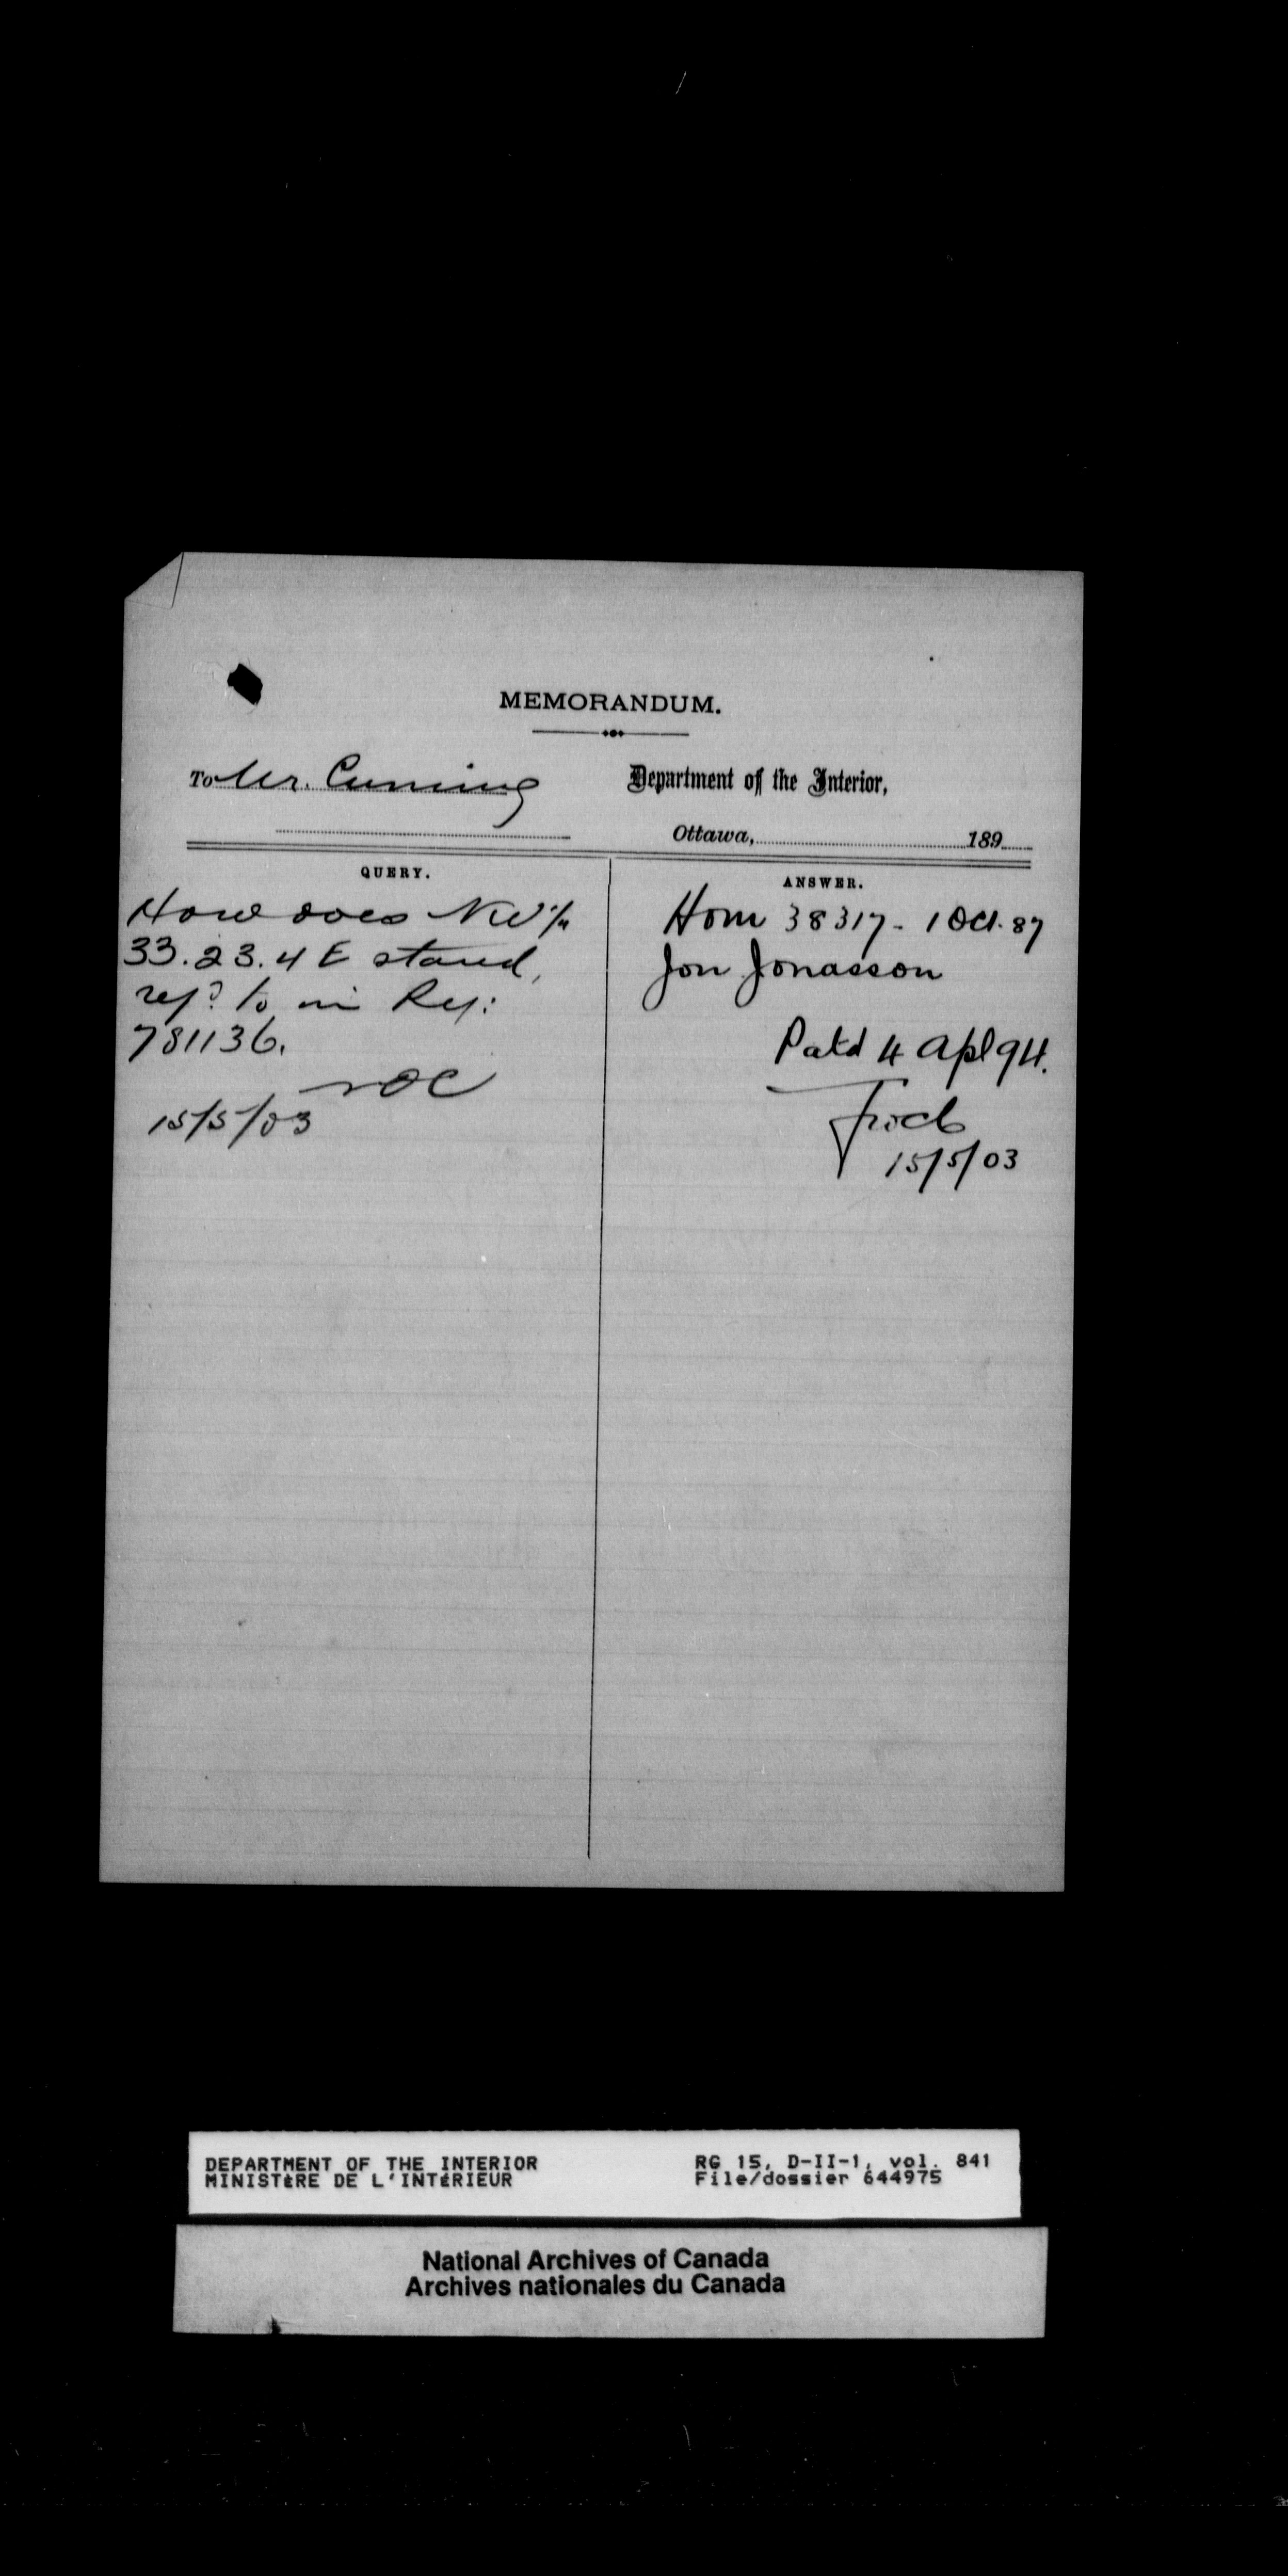 MEMORANDUM.
To Mr. Cuming
Department of the Interior,
Ottawa, 189
QUERY.
How does NW 1/4
33.23.4 E stand,
refd to in Ref:
781136.
15/5/03
ANSWER.
Hom 38317 - 1 Oct. 87
Jon Jonasson
Patd 4 Apl 94.
15/5/03
DEPARTMENT OF THE INTERIOR
MINISTÈRE DE L'INTÉRIEUR
RG 15, D-II-1, vol. 841
File/dossier 644975
National Archives of Canada
Archives nationales du Canada